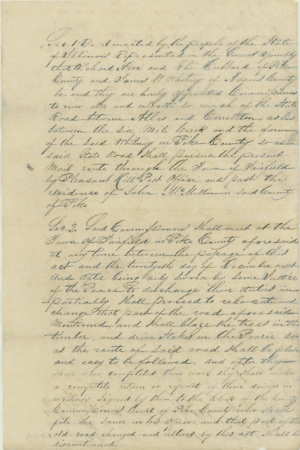 Sec. 1 Be it enacted by the people of the State
of Illinois Represented in the General Assembly
that Richard and Eli Hubbard of Pike
County and James W. Whitney of Adams County
be and they are hereby appointed Commissioners
to view and relocate so much of the State
Road between Atlas and Carrollton as lies
between the Six Mile Creek and the farm
of the said Whitney in Pike County so as
said State Road Shall pursue the present
Mail route through the Town of Fairfield
by Pleasant Hill Post Office and past the
residence of John McMullin in said County
of Pike
Sec 2. Said Commissioners Shall meet at the
Town of Fairfield in Pike County aforesaid
at any time between the passage of this
act and the day of next
and after being duly Sworn by some Justice
of the Peace to discharge their duties im-
partially Shall proceed to relocate and
change that part of the road aforesaid
Mentioned and Shall blaze the trees in the
timber and drive Stakes in the Prairie so
as the route of said road Shall be plain
and easy to be followed and after they
have completed this work they Shall make
a complete return or report of their doings in
writing Signed by them to the Clerk of the County
Commissioners Court of Pike County who Shall
file the same in his office and that part of the
old road changed and altered by this act Shall be
discontinued